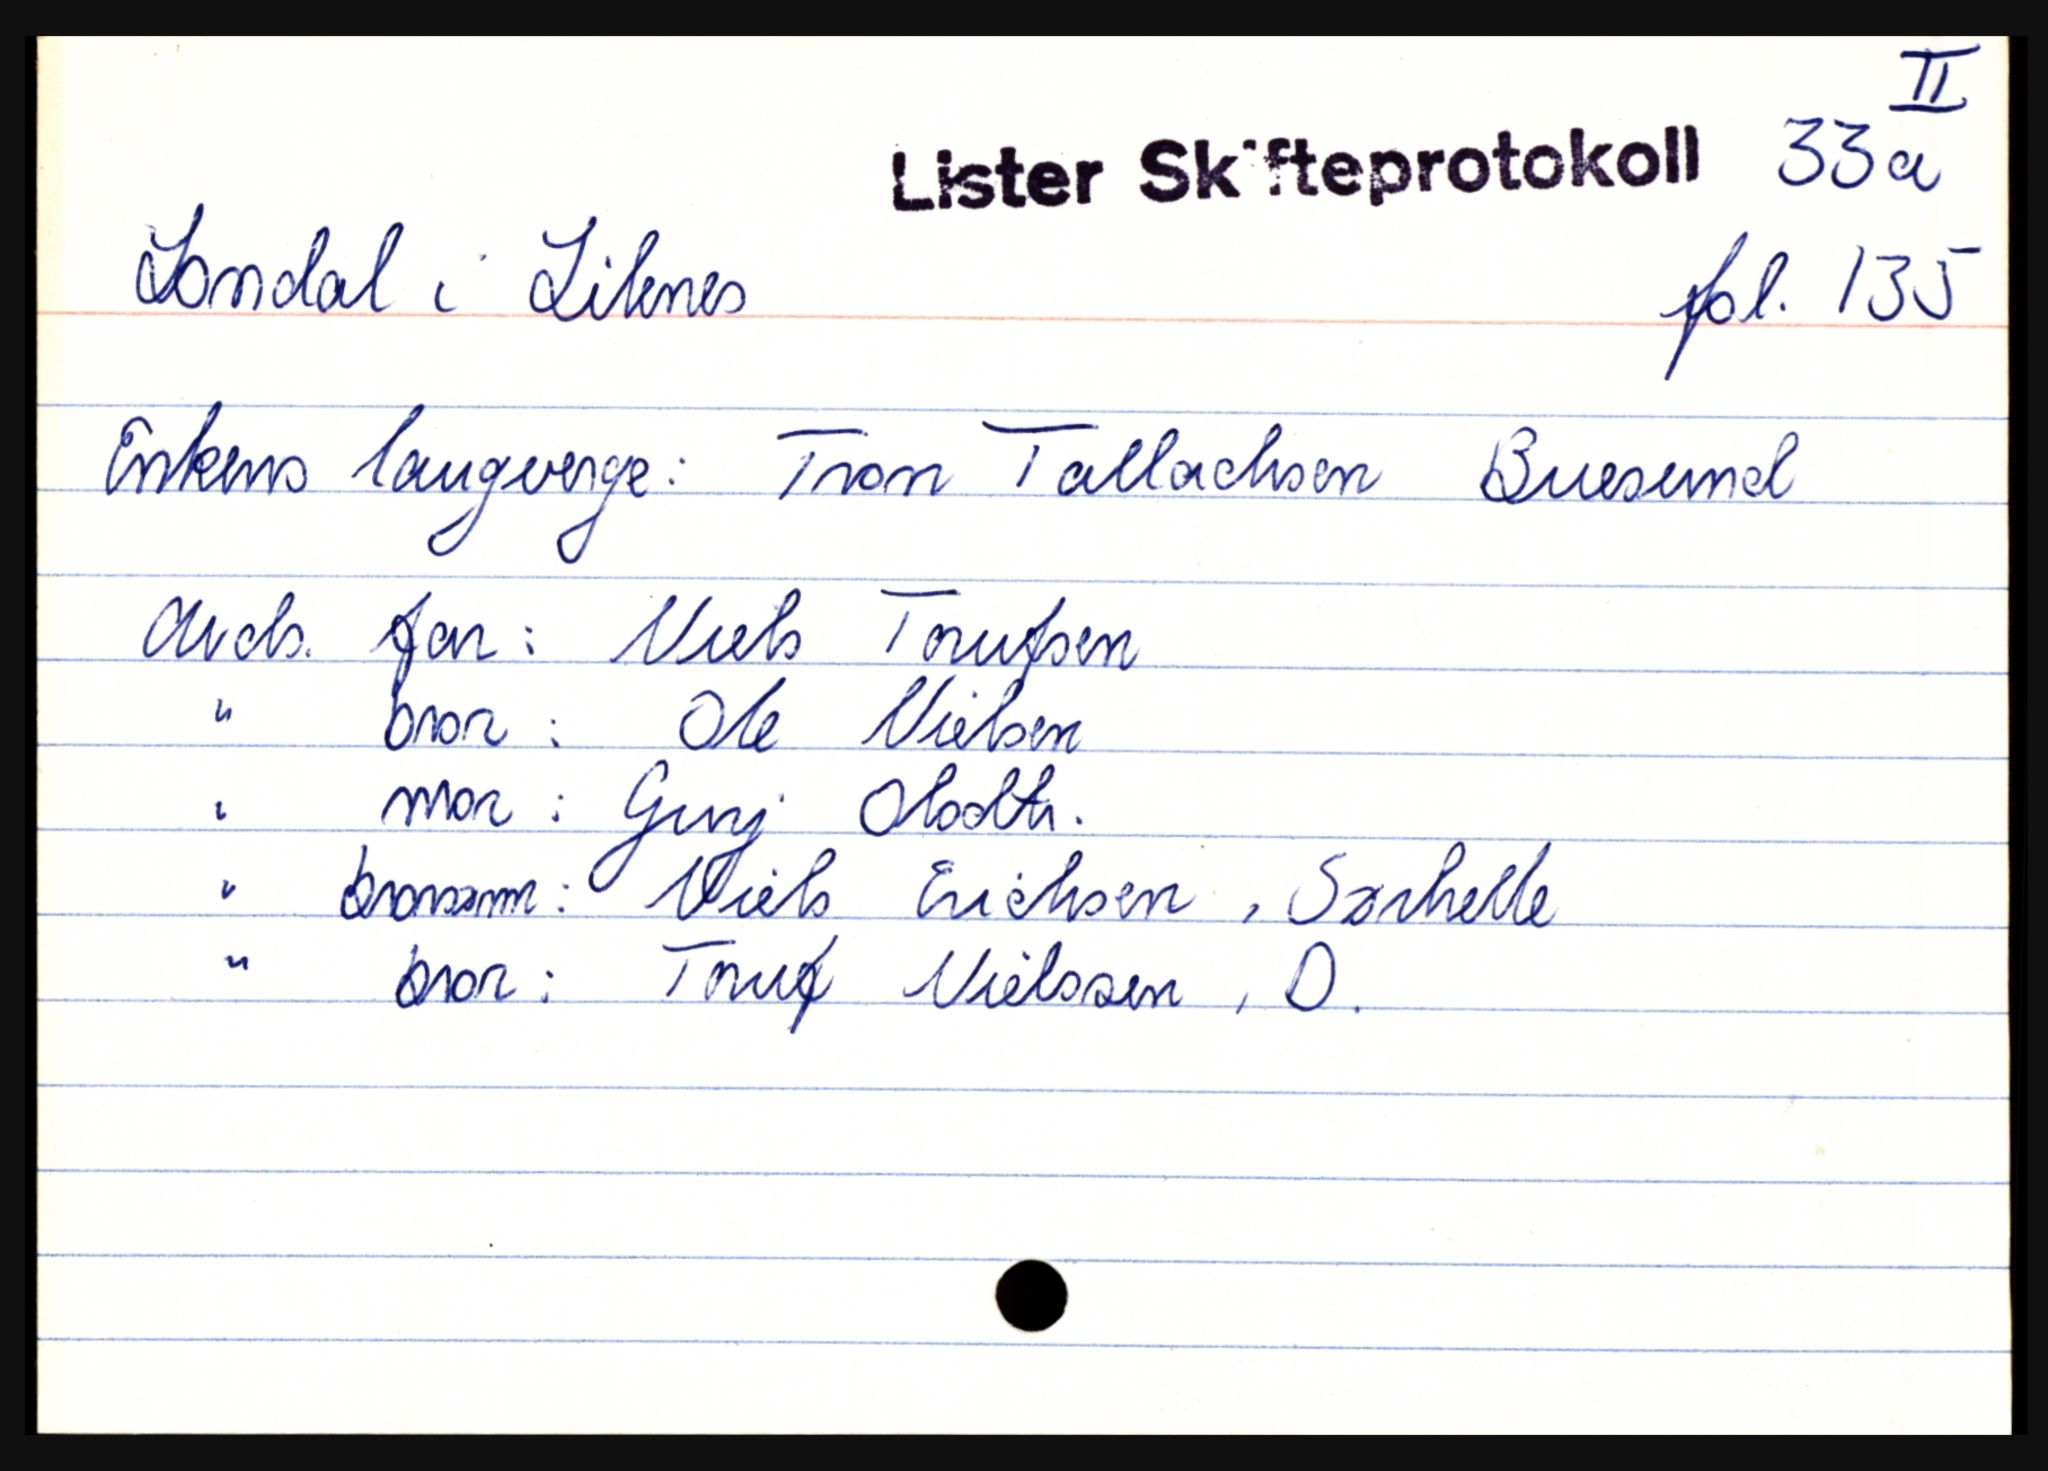 II
Lister Skifteprotokoll 33a
Londal i Liknes fol. 135
Enkens laugverge: Tron Tallachsen Buesund
Avds. far: Niels Torufsen
" bror: Ole Nielsen
" mor: Gurj Olsdtr.
" brorsønn: Niels Erichsen, Sørhelle
" bror: Toruf Nielssen, D.